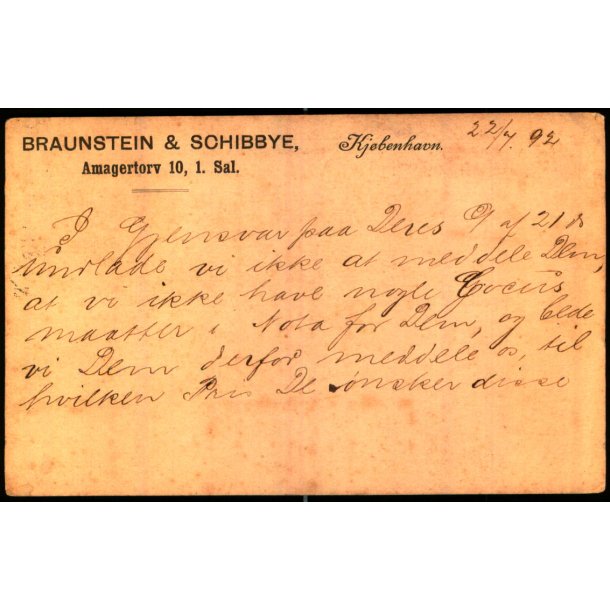 BRAUNSTEIN & SCHIBBYE,
Amagertorv 10, 1. Sal.
Kjøbenhavn.
22/7. 92
I Gjensvar paa Deres af 21 ds
undlade vi ikke at meddele Dem,
at vi ikke have nogle Cocus
maatter i Nota for Dem, og bede
vi Dem derfor meddele os, til
hvilken Pris De ønsker disse